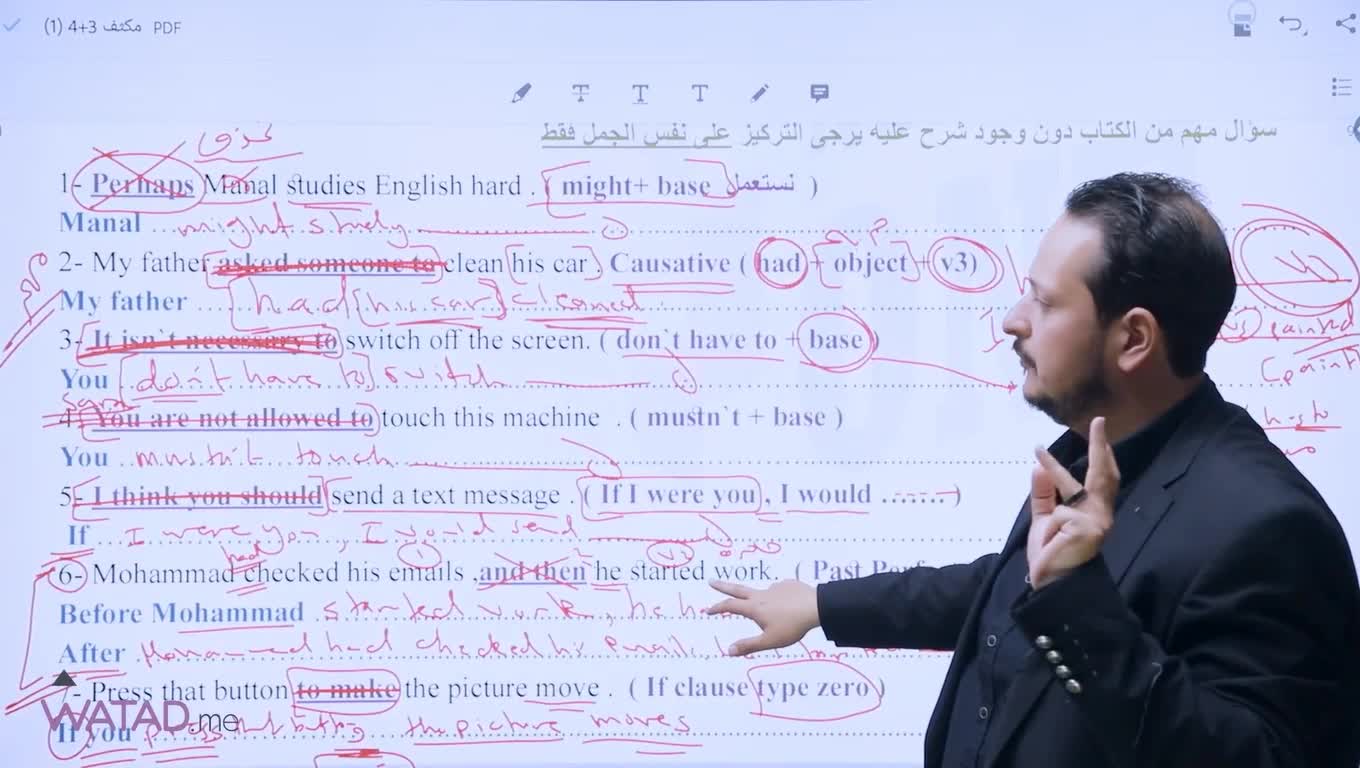 مكثف 3+4 (1) PDF
سؤال مهم من الكتاب دون وجود شرح عليه يرجى التركيز على نفس الجمل فقط
1- Perhaps Manal studies English hard . ( might+ base نستعمل )
Manal ... might study
2- My father asked someone to clean his car . Causative ( had + object + v3)
My father ... had his car cleaned
v3 painted
3- It isn`t necessary to switch off the screen. ( don`t have to + base )
You ... don't have to switch
Sara
4- You are not allowed to touch this machine . ( mustn`t + base )
You ... mustn't touch
5- I think you should send a text message . ( If I were you , I would ........)
If ... I were you , I would send
had
6- Mohammad checked his emails ,and then he started work. ( Past Perf
Before Mohammad started work, he ha
After Mohammad had checked his emails, he
7- Press that button to make the picture move . ( If clause type zero )
If you press that button the picture moves
WATAD.me